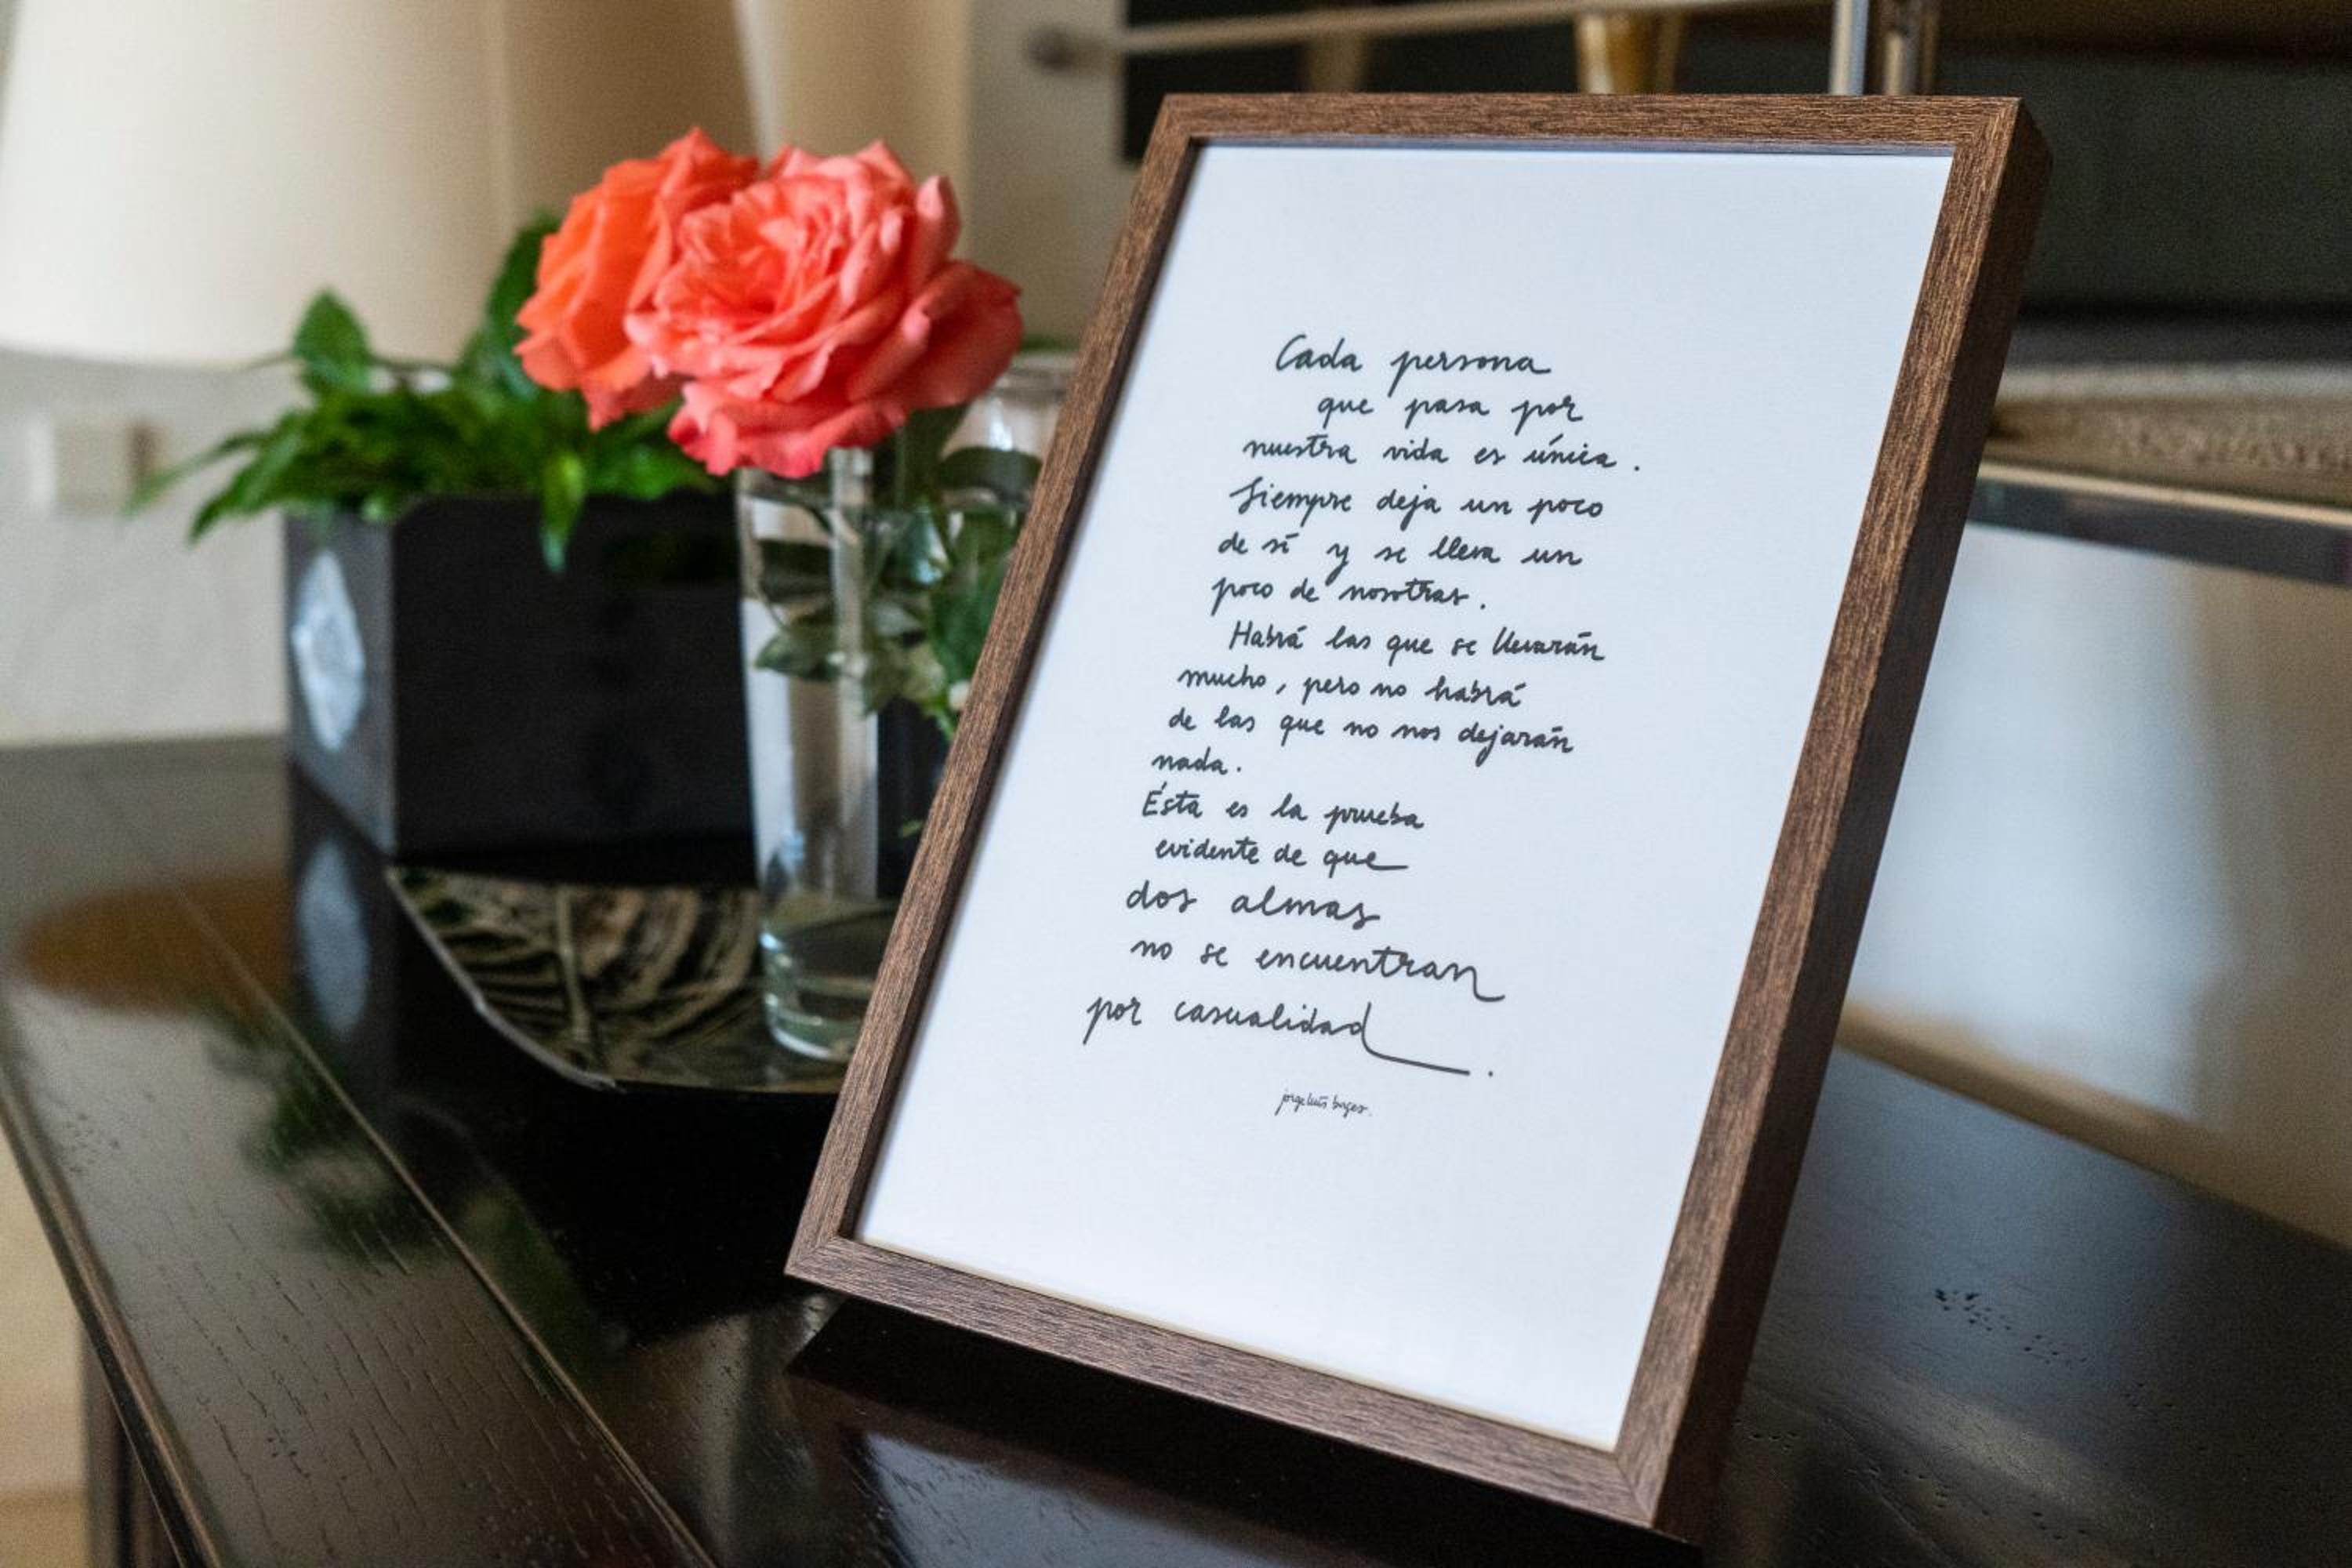 Cada persona
que pasa por
nuestra vida es única.
Siempre deja un poco
de sí y se lleva un
poco de nosotras.
Habrá las que se llevarán
mucho, pero no habrá
de las que no nos dejarán
nada.
Ésta es la prueba
evidente de que
dos almas
no se encuentran
por casualidad.
jorge luis borges.